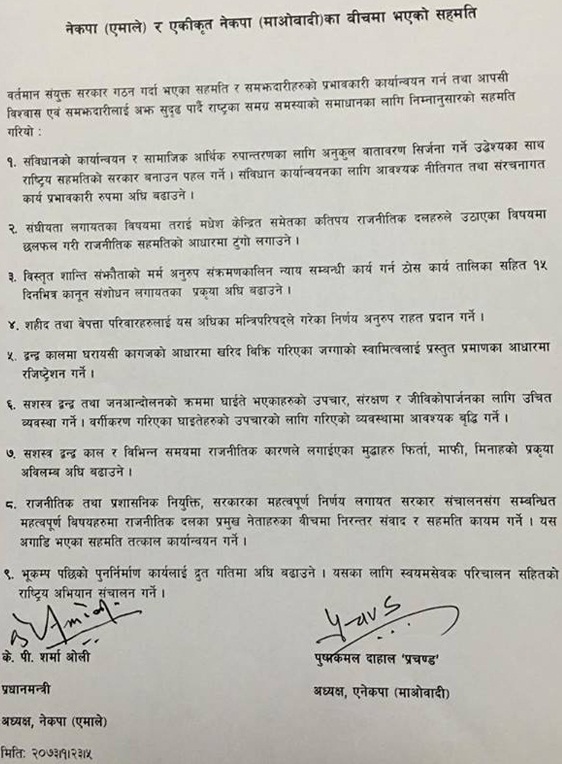 नेकपा (एमाले) र एकीकृत नेकपा (माओवादी)का बीचमा भएको सहमति
वर्तमान संयुक्त सरकार गठन गर्दा भएका सहमति र समझदारीहरुको प्रभावकारी कार्यान्वयन गर्न तथा आपसी
विश्वास एवं समझदारीलाई अझ सुदृढ पार्दै राष्ट्रका समग्र समस्याको समाधानका लागि निम्नानुसारको सहमति
गरियो :
१. संविधानको कार्यान्वयन र सामाजिक आर्थिक रुपान्तरणका लागि अनुकुल वातावरण सिर्जना गर्ने उद्धेश्यका साथ
राष्ट्रिय सहमतिको सरकार बनाउन पहल गर्ने । संविधान कार्यान्वयनका लागि आवश्यक नीतिगत तथा संरचनागत
कार्य प्रभावकारी रुपमा अघि बढाउने ।
२. संघीयता लगायतका विषयमा तराई मधेश केन्द्रित समेतका कतिपय राजनीतिक दलहरुले उठाएका विषयमा
छलफल गरी राजनीतिक सहमतिको आधारमा टुंगो लगाउने ।
३. विस्तृत शान्ति संझौताको मर्म अनुरुप संक्रमणकालिन न्याय सम्वन्धी कार्य गर्न ठोस कार्य तालिका सहित १५
दिनभित्र कानून संशोधन लगायतका प्रकृया अघि बढाउने ।
४. शहीद तथा बेपत्ता परिवारहरुलाई यस अघिका मन्त्रिपरिषद्ले गरेका निर्णय अनुरुप राहत प्रदान गर्ने ।
५. द्वन्द्व कालमा घरायसी कागजको आधारमा खरिद बिक्रि गरिएका जग्गाको स्वामित्वलाई प्रस्तुत प्रमाणका आधारमा
रजिष्ट्रेशन गर्ने ।
६. सशस्त्र द्वन्द्व तथा जनआन्दोलनको क्रममा घाईते भएकाहरुको उपचार, संरक्षण र जीविकोपार्जनका लागि उचित
व्यवस्था गर्ने । वर्गीकरण गरिएका घाइतेहरुको उपचारको लागि गरिएको व्यवस्थामा आवश्यक बृद्धि गर्ने ।
७. सशस्त्र द्वन्द्व काल र विभिन्न समयमा राजनीतिक कारणले लगाईएका मुद्धाहरु फिर्ता, माफी, मिनाहको प्रकृया
अविलम्ब अघि बढाउने ।
८. राजनीतिक तथा प्रशासनिक नियुक्ति, सरकारका महत्वपूर्ण निर्णय लगायत सरकार संचालनसंग सम्बन्धित
महत्वपूर्ण विषयहरुमा राजनीतिक दलका प्रमुख नेताहरुका बीचमा निरन्तर संवाद र सहमति कायम गर्ने । यस
अगाडि भएका सहमति तत्काल कार्यान्वयन गर्ने ।
९. भूकम्प पछिको पुनर्निर्माण कार्यलाई द्रुत गतिमा अघि बढाउने । यसका लागि स्वयमसेवक परिचालन सहितको
राष्ट्रिय अभियान संचालन गर्ने ।
के. पी. शर्मा ओली
पुष्पकमल दाहाल ‘प्रचण्ड’
प्रधानमन्त्री
अध्यक्ष, एनेकपा (माओवादी)
अध्यक्ष, नेकपा (एमाले)
मिति: २०७३।१।२३।५